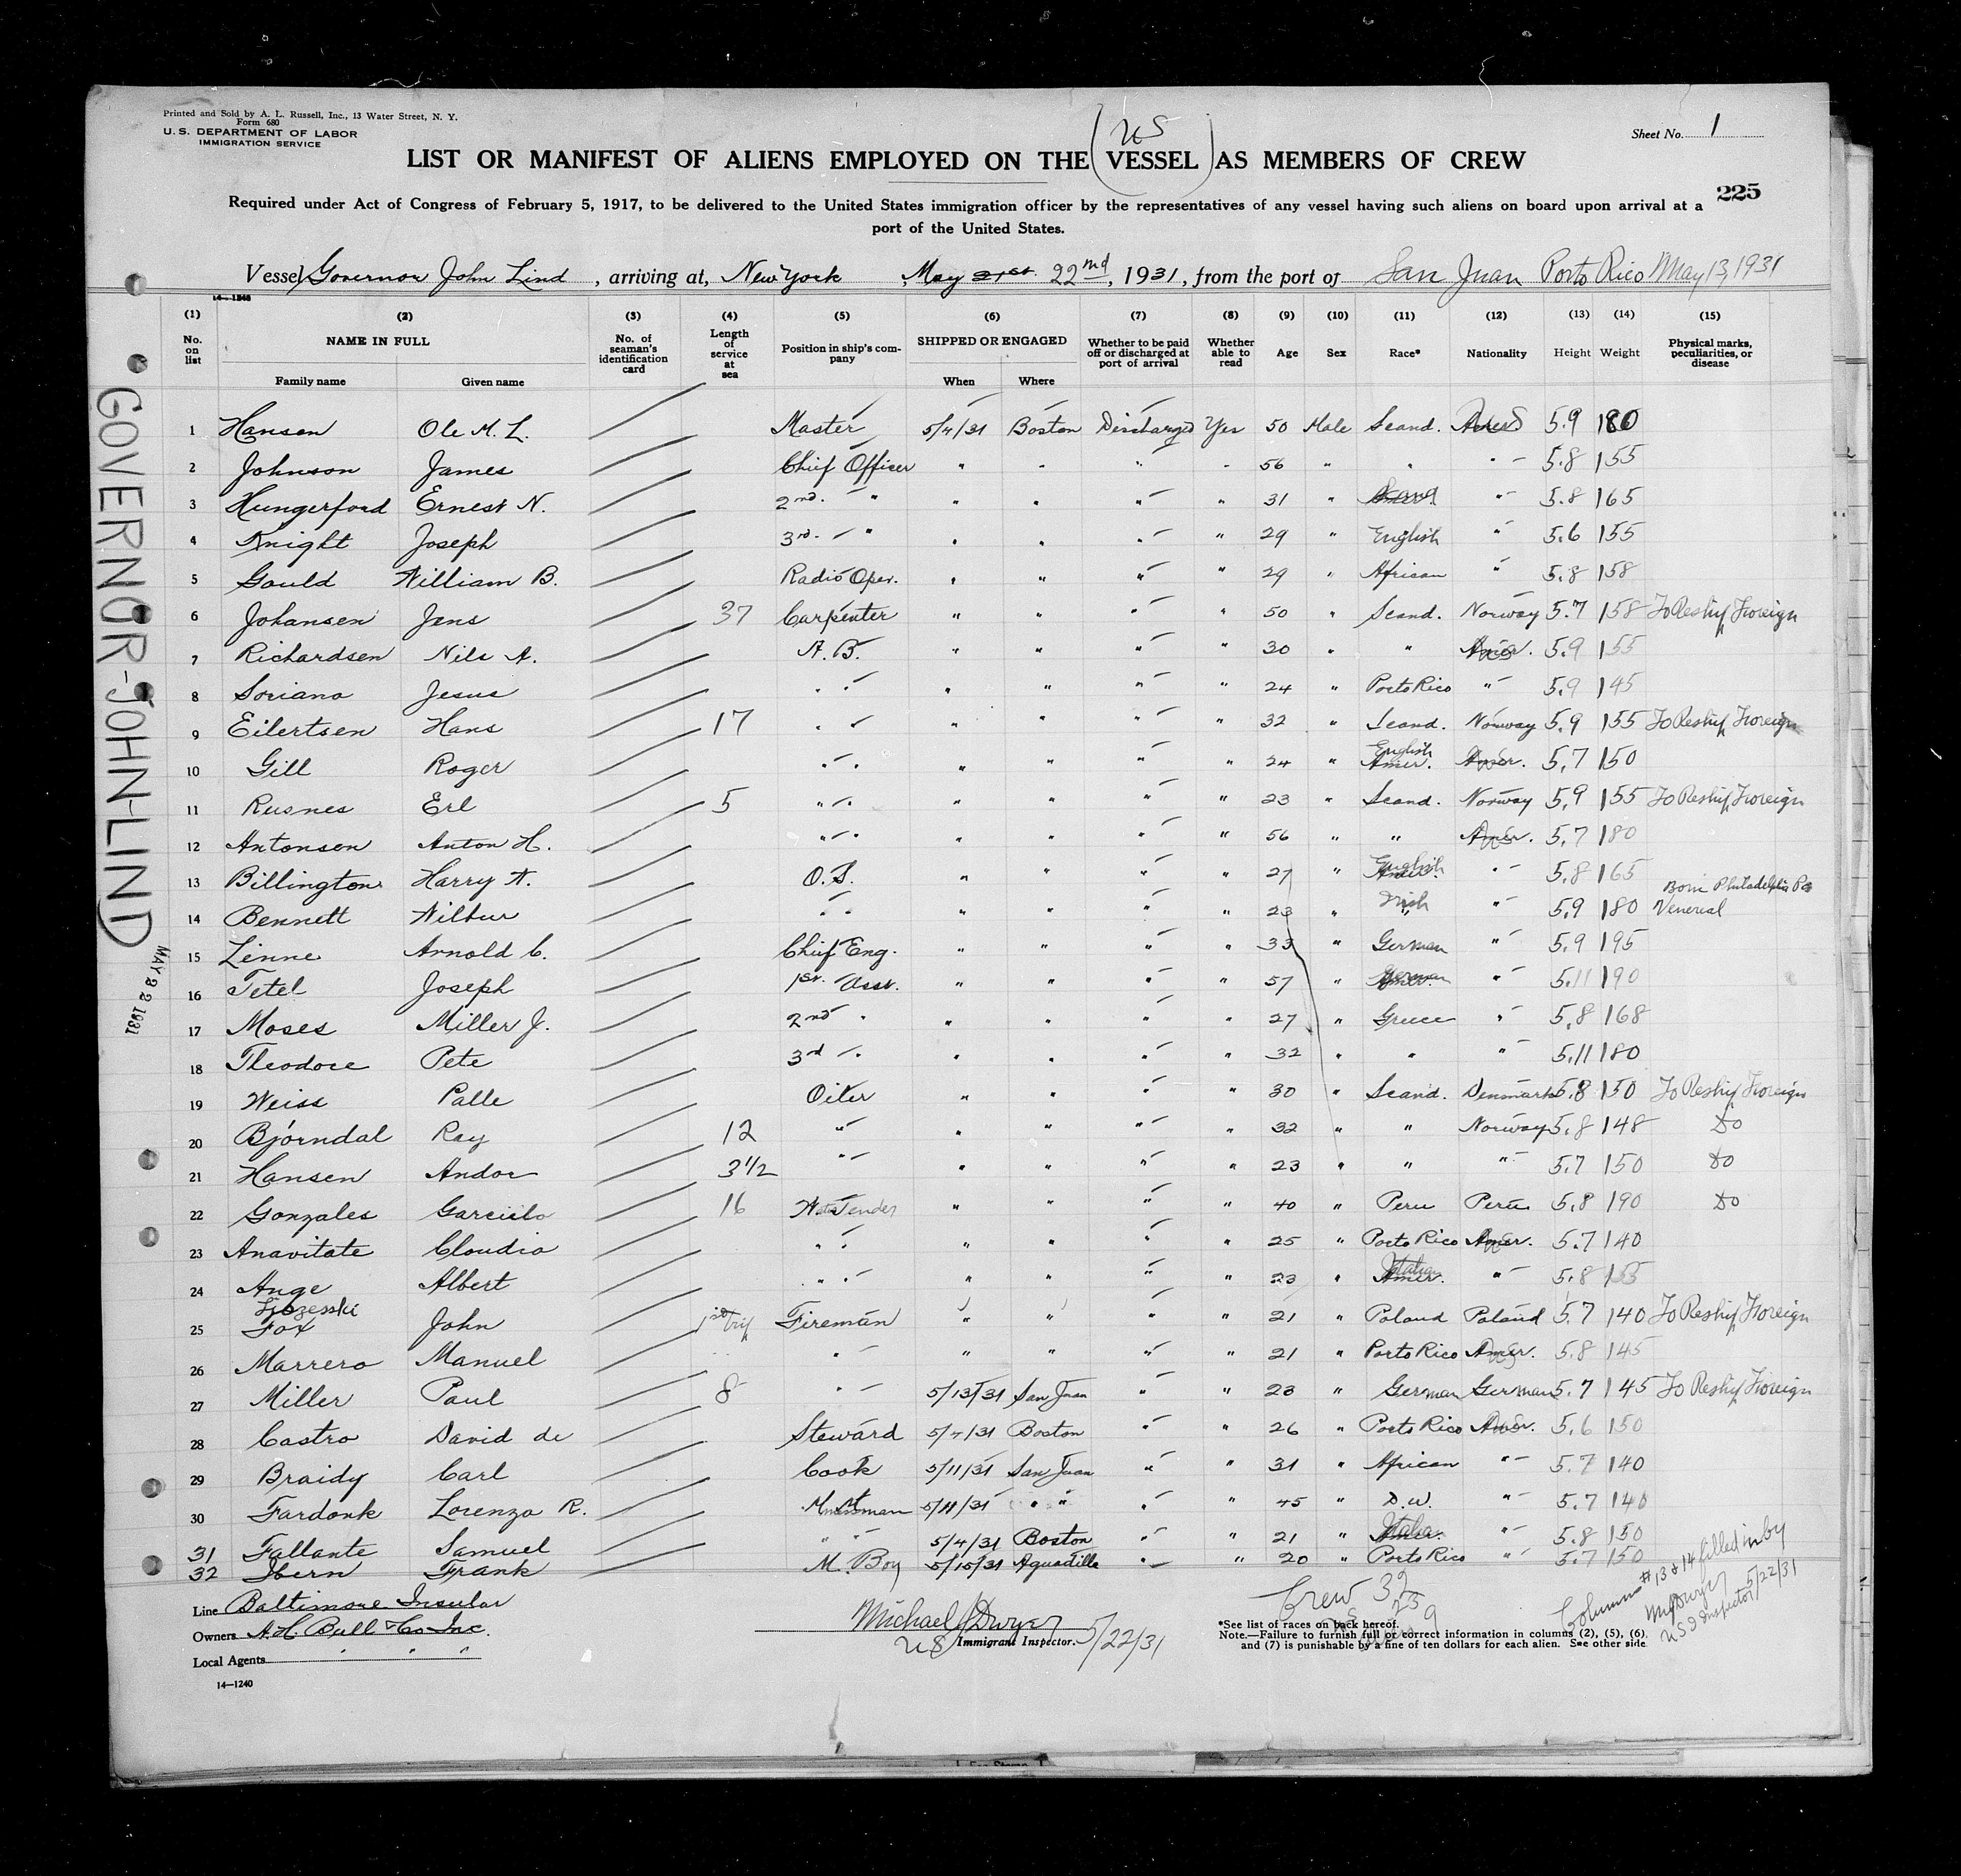 Printed and Sold by A. L. Russell, Inc., 13 Water Street, N. Y.
Form 680
U. S. DEPARTMENT OF LABOR
IMMIGRATION SERVICE
Sheet No. 1
US
LIST OR MANIFEST OF ALIENS EMPLOYED ON THE (VESSEL) AS MEMBERS OF CREW
225
Required under Act of Congress of February 5, 1917, to be delivered to the United States immigration officer by the representatives of any vessel having such aliens on board upon arrival at a
port of the United States.
Vessel Governor John Lind, arriving at, New York, May 21st 22nd, 1931, from the port of San Juan Porto Rico May 13, 1931
14-1240
(1) (2) (3) (4) (5) (6) (7) (8) (9) (10) (11) (12) (13) (14) (15)
No. on list NAME IN FULL No. of seaman's identification card Length of service at sea Position in ship's company SHIPPED OR ENGAGED Whether to be paid off or discharged at port of arrival Whether able to read Age Sex Race* Nationality Height Weight Physical marks, peculiarities, or disease
Family name Given name When Where
1 Hansen Ole M. L. Master 5/4/31 Boston Discharged Yes 50 Male Scand. 5.9 180
2 Johnson James Chief Officer " " " " 56 " " " 5.8 155
3 Hungerford Ernest N. 2nd. " " " " " 31 " " 5.8 165
4 Knight Joseph 3rd. " " " " " 29 " English " 5.6 155
5 Gould William B. Radio Oper. " " " " 29 " African " 5.8 158
6 Johansen Jens 37 Carpenter " " " " 50 " Scand. Norway 5.7 158 To Reship Foreign
7 Richardsen Nils A. A. B. " " " " 30 " " Amer. 5.9 155
8 Soriano Jesus " " " " " " 24 " Porto Rico " 5.9 145
9 Eilertsen Hans 17 " " " " " " 32 " Scand. Norway 5.9 155 To Reship Foreign
10 Gill Roger " " " " " " 24 " English Amer. Amer. 5.7 150
11 Rusnes Erl 5 " " " " " " 23 " Scand. Norway 5.9 155 To Reship Foreign
12 Antonsen Anton H. " " " " " " 56 " " Amer. 5.7 180
13 Billington Harry A. O. S. " " " " 27 " English " 5.8 165
Born Philadelphia Pa
14 Bennett Wilbur " " " " " " 23 " Irish " 5.9 180 Venereal
15 Linne Arnold C. Chief Eng. " " " " 33 " German " 5.9 195
16 Tetel Joseph 1st. Asst. " " " " 57 " German " 5.11 190
17 Moses Miller J. 2nd " " " " " 27 " Greece " 5.8 168
18 Theodore Pete 3rd " " " " " 32 " " " 5.11 180
19 Weiss Palle Oiler " " " " 30 " Scand. Denmark 5.8 150 To Reship Foreign
20 Bjorndal Ray 12 " " " " " 32 " " Norway 5.8 148 Do
21 Hansen Andor 3 1/2 " " " " " 23 " " " 5.7 150 Do
22 Gonzales 16 Water Tender " " " " 40 " Peru Peru 5.8 190 Do
23 Anavitate Claudio " " " " " " 25 " Porto Rico Amer. 5.7 140
24 Auge Albert " " " " " " 23 " Italian Amer. " 5.8 155
25 Fox John 1st trip Fireman " " " " 21 " Poland Poland 5.7 140 To Reship Foreign
26 Marrero Manuel " " " " " 21 " Porto Rico Amer. 5.8 145
27 Miller Paul 8 " 5/13/31 San Juan " " 23 " German German 5.7 145 To Reship Foreign
28 Castro David de Steward 5/4/31 Boston " " 26 " Porto Rico Amer. 5.6 150
29 Braidy Carl Cook 5/11/31 San Juan " " 31 " African " 5.7 140
30 Fardonk Lorenzo R. Messman 5/11/31 " " " " 45 " D.W. " 5.7 140
31 Fallante Samuel " " 5/4/31 Boston " " 21 " Italia " 5.8 150
32 Ibern Frank M. Boy 5/15/31 Aguadilla " " 20 " Porto Rico " 5.7 150
GOVERNOR-JOHN-LIND
MAY 22 1931
Line Baltimore Insular
Owners A.H. Bull & Co Inc.
Local Agents " " "
14—1240
Michael J Dwyer
US Immigrant Inspector. 5/22/31
Crew 32
US 23
9
*See list of races on back hereof.
Note.—Failure to furnish full or correct information in columns (2), (5), (6),
and (7) is punishable by a fine of ten dollars for each alien. See other side
Columns #13 & 14 filled in by
MJ Dwyer 5/22/31
US Inspector